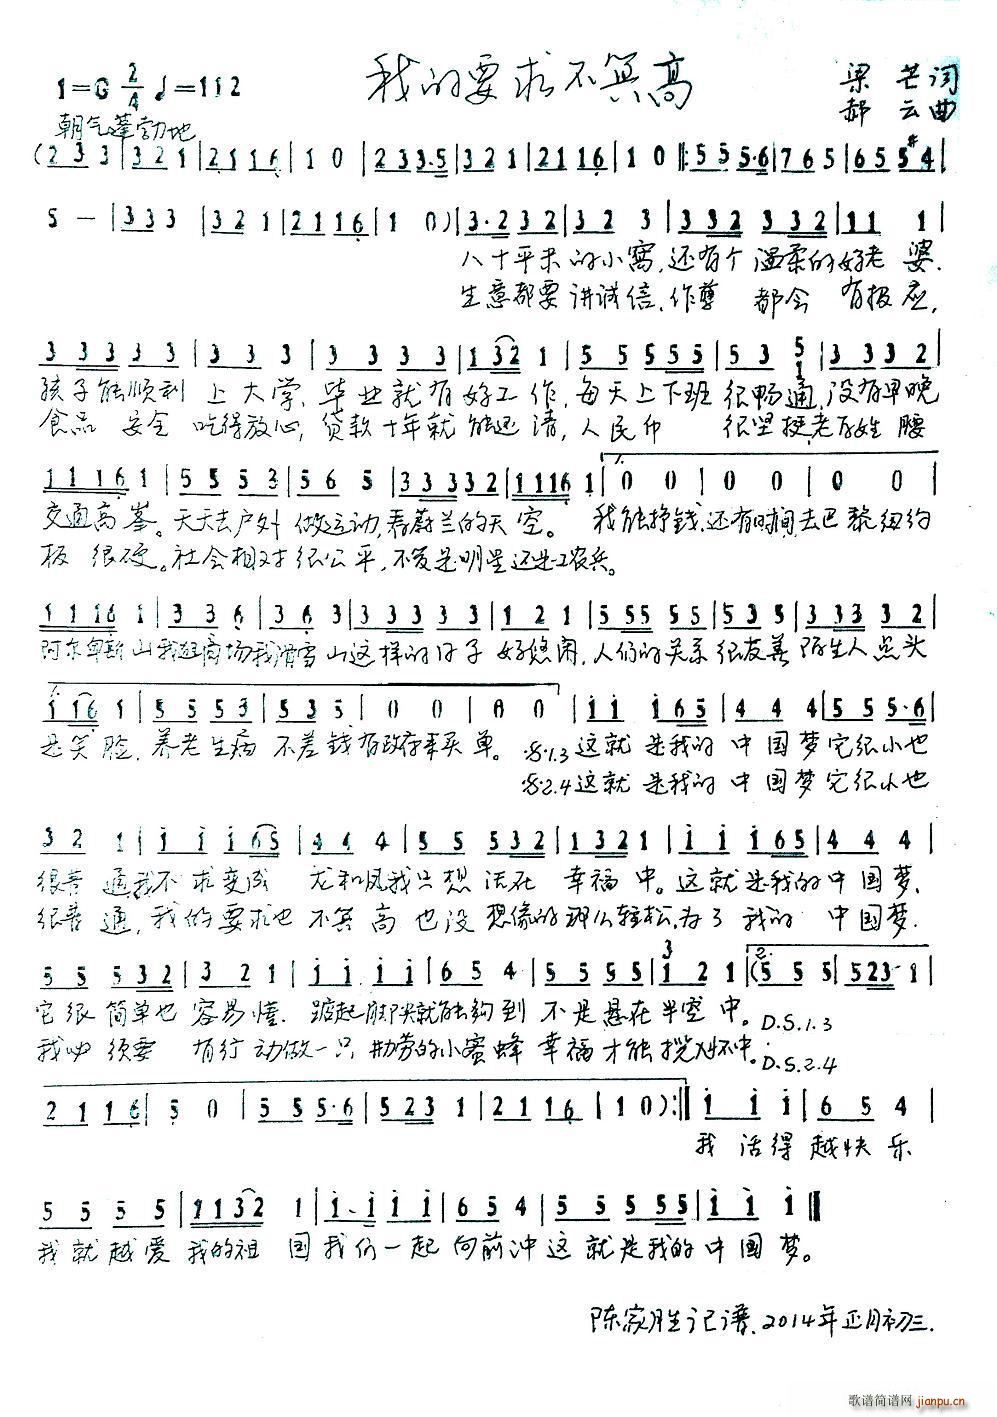 我的要求不算高
1=G 2/4 ♩=112
梁芒词
郝云曲
朝气蓬勃地
(2 3 3 | 3 2 1 | 2 1 1 6 | 1 0 | 2 3 3 3·5 | 3 2 1 | 2 1 1 6 | 1 0 |: 5 5 5 5·6 | 7 6 5 | 6 5 5 #4 |
5 — | 3 3 3 | 3 2 1 | 2 1 1 6 | 1 0 ) | 3·2 3 2 | 3 2 3 | 3 3 2 3 3 2 | 1 1 1 |
八十平米的小窝,还有个温柔的好老婆.
生意都要讲诚信,作孽都会有报应,
3 3 3 3 3 | 3 3 3 | 3 3 3 3 | 1 3 2 1 | 5 5 5 5 5 | 5 3 5 1 | 3 3 3 2 |
孩子能顺利上大学,毕业就有好工作,每天上下班很畅通,没有早晚
食品安全吃得放心,贷款十年就能还清,人民币很坚挺,老百姓腰
1 1 1 6 1 | 5 5 5 3 | 5 6 5 | 3 3 3 3 2 | 1 1 1 6 1 | 0 0 | 0 0 | 0 0 |
交通高峯。天天去户外做运动,看蔚兰的天空。我能挣钱,还有时间,去巴黎纽约
板很硬。社会相对很公平,不管是明星还是工农兵。
1 1 1 6 1 | 3 3 6 | 3 6 3 | 3 3 3 3 3 | 1 2 1 | 5 5 5 5 5 | 5 3 5 | 3 3 3 3 2 |
阿尔卑斯山我逛商场我滑雪山这样的日子好悠闲,人们的关系很友善陌生人点头
1 1 6 1 | 5 5 5 3 | 5 3 5 | 0 0 | 0 0 | i i i 6 5 | 4 4 4 | 5 5 5 5·6 |
是笑脸,养老生病不差钱有政府来买单。𝄋.1.3这就是我的中国梦它很小也
𝄋.2.4这就是我的中国梦它很小也
3 2 1 | i i i 6 5 | 4 4 4 | 5 5 5 3 2 | 1 3 2 1 | i i i 6 5 | 4 4 4 |
很普通我不求变成龙和凤我只想活在幸福中。这就是我的中国梦,
很普通,我的要求也不算高也没想像的那么轻松,为了我的中国梦.
5 5 5 3 2 | 3 2 1 | i i i i | 6 5 4 | 5 5 5 5 | 3 1 2 1 | 2. (5 5 5 | 5 2 3 1 |
它很简单也容易懂.踮起脚尖就能够到不是悬在半空中。D.S.1.3
我必须要有行动做一只勤劳的小蜜蜂幸福才能揽入怀中.D.S.2.4
2 1 1 6 | 5 0 | 5 5 5 5·6 | 5 2 3 1 | 2 1 1 6 | 1 0 ) :| i i i | 6 5 4 |
我活得越快乐
5 5 5 5 | 1 1 3 2 1 | i·i i i | 6 5 4 | 5 5 5 5 5 | i i i | i i ‖
我就越爱我的祖国我们一起向前冲这就是我的中国梦。
陈家胜记谱.2014年正月初三.
歌谱简谱网
jianpu.cn